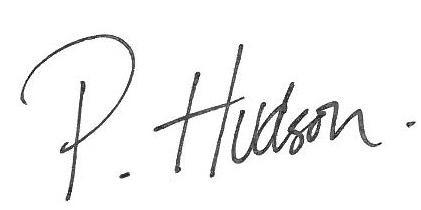 P. Hudson.